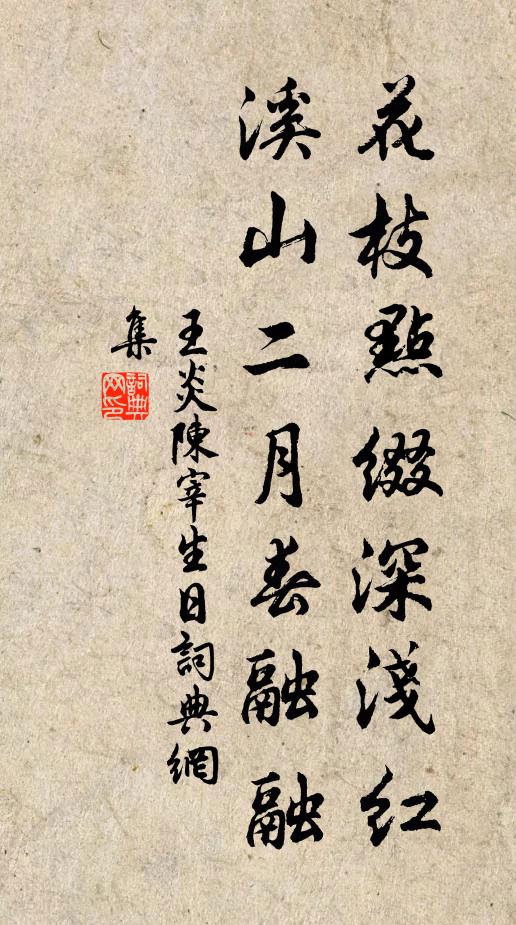 花枝點綴深淺紅
溪山二月春融融
王炎陳宰生日詞典網
集
詞典
网印